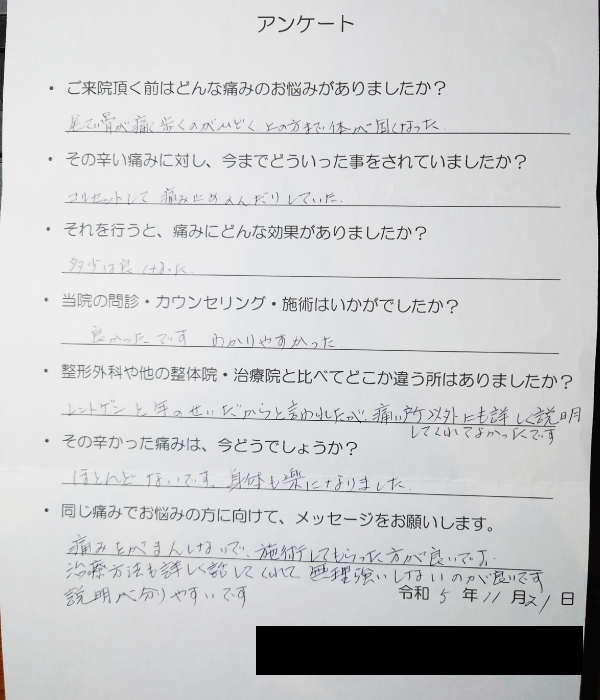 アンケート
・ご来院頂く前はどんな痛みのお悩みがありましたか？
尾てい骨が痛く歩くのがひどく上の方まで体が固くなった.
・その辛い痛みに対し、今までどういった事をされていましたか？
コルセットして 痛み止めのんだりしていた.
・それを行うと、痛みにどんな効果がありましたか？
多少は良くなった.
・当院の問診・カウンセリング・施術はいかがでしたか？
良かったです わかりやすかった
・整形外科や他の整体院・治療院と比べてどこか違う所はありましたか？
レントゲンと年のせいだからと言われたが、痛い所以外にも詳しく説明
してくれてよかったです
・その辛かった痛みは、今どうでしょうか？
ほとんどないです。身体も楽になりました.
・同じ痛みでお悩みの方に向けて、メッセージをお願いします。
痛みをがまんしないで、施術してもらった方が良いです。
治療方法も詳しく話してくれて 無理強いしないのが良いです
説明が分りやすいです
令和 5 年 11 月 21 日